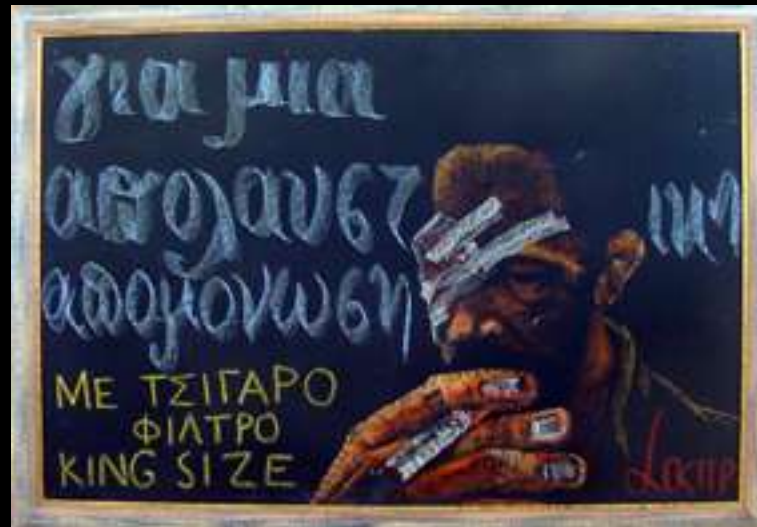 για μια
απολαυστικη
απομονωση
ΜΕ ΤΣΙΓΑΡΟ
ΦΙΛΤΡΟ
KING SIZE